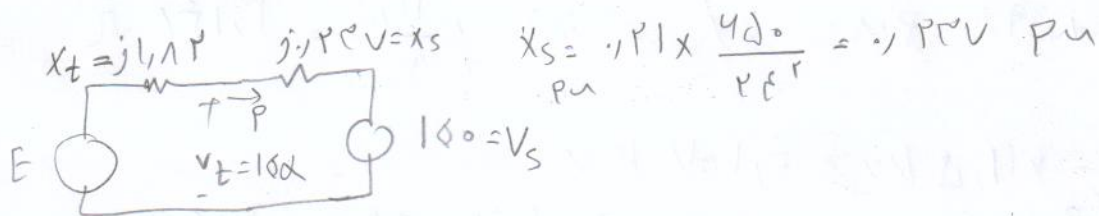 X_t = j۱,۸۲    j۰,۲۳۷ = X_s    X_s = ۰,۲۱ × ۶۵۰ / ۲۴^۲ = ۰,۲۳۷ pu
pu
+ → P
E    V_t = 1∠α    1∠0 = V_s
-